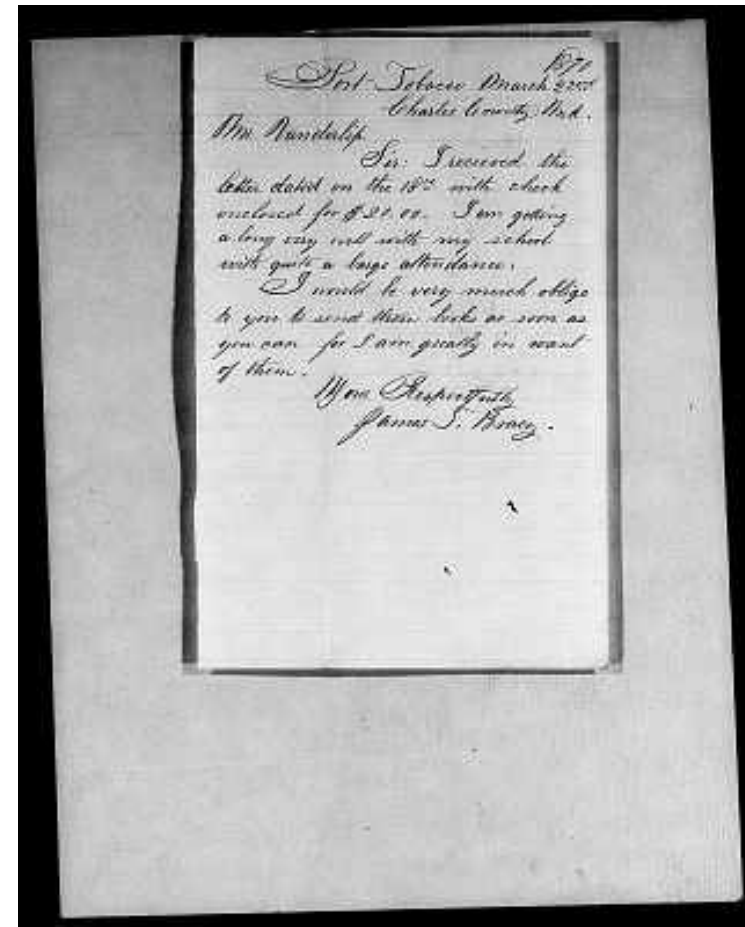 1870
Port Tobacco March 22nd
Charles County, Md.
Mr. Vanderlip
Sir: I received the
letter dated on the 18th with check
enclosed for $20.00. I am getting
a long very well with my school
with quite a large attendance.
I would be very much oblige
to you to send them books as soon as
you can for I am greatly in want
of them.
Your Respectfully
James T.